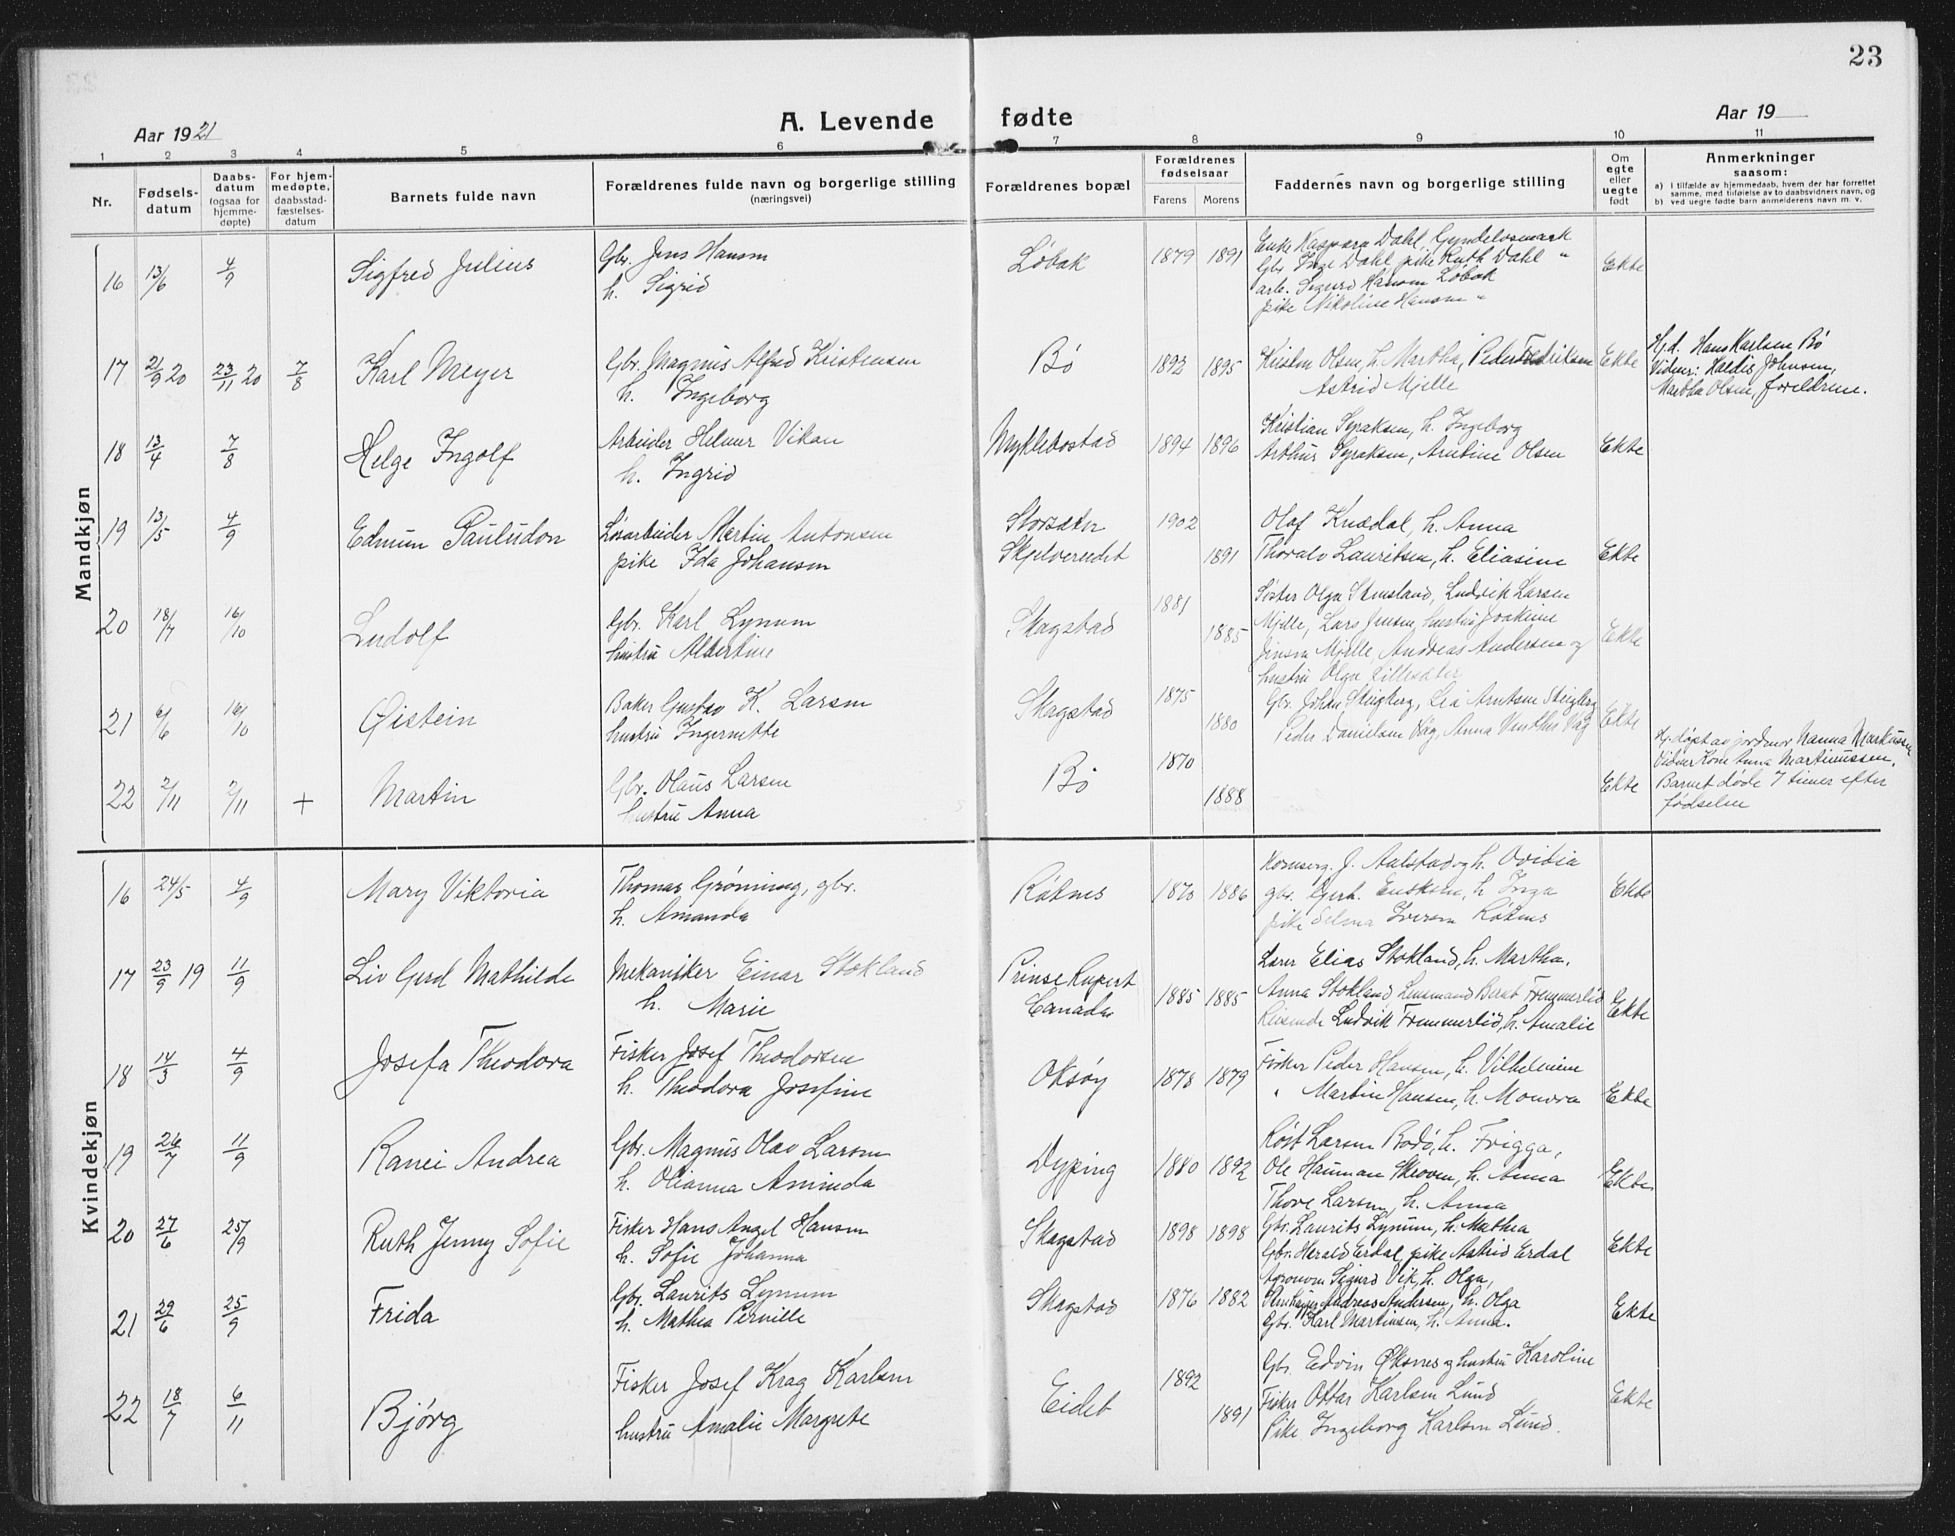 23
Aar 1921
A. Levende fødte
Aar 19
1 2 3 4 5 6 7 8 9 10 11
Nr.
Fødsels-
datum
Daabs-
datum
(ogsaa for
hjemme-
døpte)
For hjem-
medøpte,
daabsstad-
fæstelses-
datum
Barnets fulde navn
Forældrenes fulde navn og borgerlige stilling
(næringsvei)
Forældrenes bopæl
Forældrenes
fødselsaar
Farens Morens
Faddernes navn og borgerlige stilling
Om
egte
eller
uegte
født
Anmerkninger
saasom:
a) I tilfælde av hjemmedaab, hvem der har forrettet
samme, med tidføielse av to daabsvidners navn, og
b) ved uegte fødte barn anmelderens navn m. v.
Mandkjøn
16 13/6 4/9 Sigfred Julius
Gbr. Jens Hansen
h. Sigrid
Løbak 1879 1891
Enke Kaspara Dahl,
Gbr Inge Dahl pike Ruth Dahl "
arb. Sigurd Hansen Løbak
pike Nikoline Hansen "
Ekte
17 21/9 20 23/11 20 7/8 Karl Meyer
Gbr. Magnus Alfred Kristensen
h. Ingeborg
Bø 1892 1895
Kristen Olsen, h. Martha, Peder Fredriksen
Astrid Mjelle
Ekte
Hj.d. Hans Karlsen Bø
Vidner: Haldis Johnsen,
Martha Olsen, foreldrene.
18 13/4 7/8 Helge Ingolf
Arbeider Helmer Vikan
h. Ingrid
Myklebostad 1894 1896
Kristian Syraksen, h. Ingeborg
Arthur Syraksen, Arntine Olsen
Ekte
19 13/5 4/9 Edmun Pauludon
Løsarbeider Martin Antonsen
pike Ida Johansen
Storsæter 1902
1891
Olaf Knædal, h. Anna
Thoralv Lauritsen, h. Eliasine
Ekte
20 18/7 16/10 Ludolf
Gbr. Karl Lynum
hustru Albertine
Skagstad 1881
1885
Søster Olga Stensland, Ludvik Larsen
Mjelle, Lars Jensen, hustru Joakime
Jensen Mjelle, Andreas Andersen og
hustru Olga Lillesæter
Ekte
21 6/6 16/10 Øistein
Baker Gustav K. Larsen
hustru Ingernette
Skagstad 1875
1880
Gbr. Johan Steigberg, Lea Arntsen Steigberg
Peder Danielsen Våg, Anna Våg
Ekte
22 2/11 2/11 + Martin
Gbr. Olaus Larsen
hustru Anna
Bø 1870
1888
Ekte
Hj. døpt av jordmor Nanna Markussen
Vidner Kone Anna Martinussen.
Barnet døde 7 timer efter
fødselen
Kvindekjøn
16 24/5 4/9 Mary Viktoria
Thomas Grønning, gbr.
h. Amanda
Røtnes 1870 1886
J. Aalstad og h. Ovidia
gbr. Gerh. Enoksen, h Inga
pike Selma Iversen Røtnes
Ekte
17 23/9 19 11/9 Liv Gerd Mathilde
Mekaniker Einar Stokland
h. Marie
Prinse Rupert
Canada
1885 1885
Lærer Elias Stokland, h. Martha,
Anna Stokland, Lensmand Bernt Tremmerlid
Reisende Ludvik Tremmerlid, h. Amalie
Ekte
18 14/3 4/9 Josefa Theodora
Fisker Josef Theodorsen
h. Theodora Josefine
Oksøy 1878 1879
Fisker Peder Hansen, h. Vilhelmine
" Martin Hansen, h. Monora
Ekte
19 26/7 11/9 Ranei Andrea
Gbr. Magnus Olav Larsen
h. Olianna Aminda
Dyping 1880 1892
Røst Larsen Bodø, h. Frigga,
Ole Hauman Skroven, h. Anna
Thore Larsen, h. Anna
Ekte
20 27/6 25/9 Ruth Jenny Sofie
Fisker Hans Angel Hansen
h. Sofie Johanna
Skagstad 1898 1898
Gbr. Laurits Lynum, h. Mathea
Gbr. Harald Erdal, pike Astrid Erdal
Ekte
21 29/6 25/9 Frida
Gbr. Laurits Lynum
h. Mathea Pernille
Skagstad 1876 1882
Agronom Sigurd Vik, h. Olga,
Andreas Andersen, h. Olga
Gbr. Karl Martinsen, h. Anna.
Ekte
22 18/7 6/11 Bjørg
Fisker Josef Krag Karlsen
hustru Amalie Margrete
Eidet 1892
1891
Gbr. Edvin Øksnes og hustru Karoline
Fisker Ottar Karlsen Lund
Pike Ingeborg Karlsen Lund.
Ekte